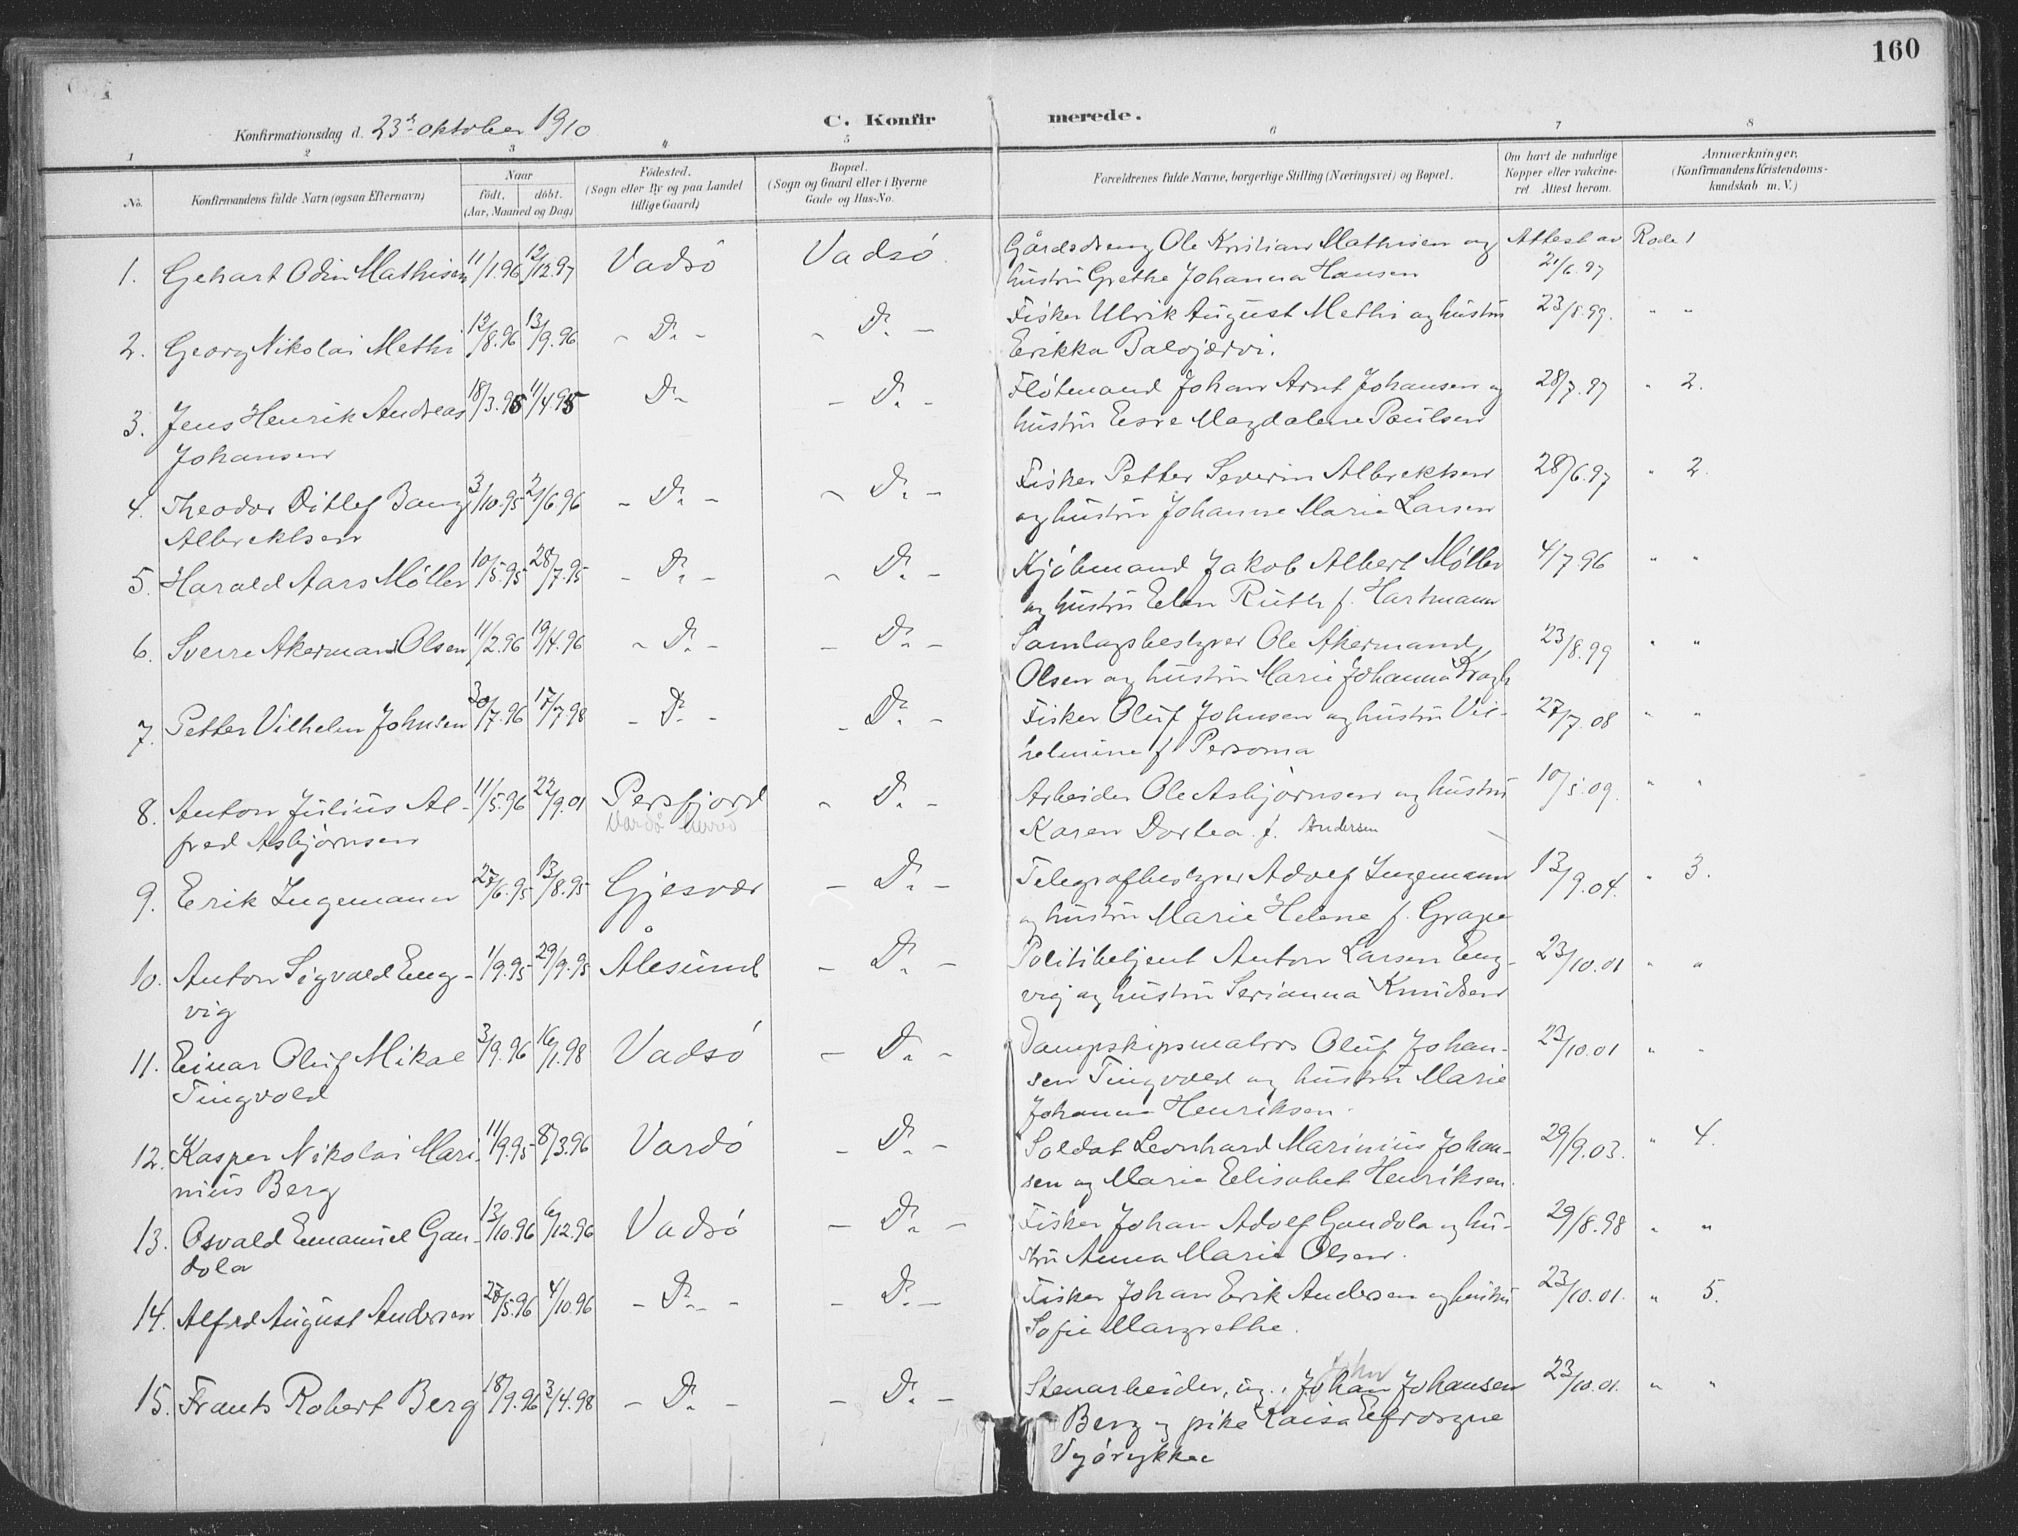 160
Konfirmationsdag d. 23de oktober 1910
C. Konfirmerede.
1 2 3 4 5 6 7 8
No.
Konfirmandens fulde Navn (ogsaa Efternavn)
Naar
født. døbt.
(Aar, Maaned og Dag)
Fødested.
(Sogn eller By og paa Landet
tillige Gaard)
Bopæl.
(Sogn og Gaard eller i Byerne
Gade og Hus-No.
Forældrenes fulde Navne, borgerlige Stilling (Næringsvei) og Bopæl.
Om havt de naturlige
Kopper eller vaccine-
ret Attest herom.
Anmærkninger.
(Konfirmandens Kristendoms-
kundskab m. V.)
1. Gehart Odin Mathisen 11/1.96 12/12.97 Vadsö Vadsö Gårdsdreng Ole Kristian Mathisen og Attest av Rode 1
hustru Grethe Johanna Hansen 21/6.97
2. Georg Nikolai Methi 12/8.96 13/9.96 - Do - - Do - Fisker Ulrik August Methi og hustru 23/8.99. " "
Erikka Balojærvi.
3. Jens Henrik Andreas 18/3.95 11/4.95 Do - Do - Fløtmand Johan Arnt Johansen og 28/7.97 " 2.
Johansen hustru Magdalene Paulsen
4. Theodor Ditlef Bang 3/10.95 21/6.96 - Do - - Do - Fisker Petter Severin Albrektsen 28/6.97 " 2.
Albrektsen og hustru Johanne Marie Larsen
5. Harald Aars Møller 10/5.95 28/7.95 - Do - - Do - Kjøbmand Jakob Albert Møller 4/7.96 " "
og hustru Elen Ruth f. Hartmann
6. Sverre Akermand Olsen 11/2.96 19/4.96 - Do - - Do - Samlagsbestyrer Ole Akermand 23/8.99 " "
Olsen og hustru Marie Johanna Kragh
7. Petter Vilhelm Johnsen 30/7.96 17/7.98 - Do - - Do - Fisker Oluf Johnsen og hustru Vil- 27/7.08 " "
helmine f. Persoma
8. Anton Julius Al- 11/5.96 22/9.01 Persfjord - Do - Arbeider Ole Asbjørnsen og hustru 10/5.09. " "
fred Asbjørnsen Vardø Karen Dorthea f. Andersen
9. Erik Ingemann 27/6.95 13/8.95 Gjesvær - Do - Telegrafbestyrer Adolf Ingemann 13/9.04. " 3.
og hustru Marie Helene f. Grape
10. Anton Sigvald Eng- 1/9.95 29/9.95 Ålesund - Do - Politibetjent Anton Larsen Eng- 23/10.01 " "
vig vig og hustru Serianna Knudsen
11. Einar Oluf Mikal 3/9.96 16/1.98 Vadsö - Do - Dampskipsmatros Oluf Johan- 23/10.01 " "
Tingvold sen Tingvold og hustru Marie
Johanne Henriksen.
12. Kasper Nikolai Mari- 11/9.95 8/3.96 Vardö - Do - Soldat Leonhard Marinius Johan- 29/9.03. " 4.
nius Berg sen og Marie Elisabet Henriksen.
13. Osvald Emanuel Gan- 13/10.96 6/12.96 Vadsö - Do - Fisker Johan Adolf Gandola og hu- 29/8.98 " "
dola stru Anna Marie Olsen.
14. Alfred August Andersen 28/5.96 4/10.96 - Do - - Do - Fisker Johan Erik Andersen og hustru 23/10.01. " 5.
Sofie Margrethe.
John
15. Frants Robert Berg 18/9.96 3/4.98 - Do - - Do - Stenarbeider, ug., Johan Johansen 23/10.01. " "
Berg og pike Kaisa